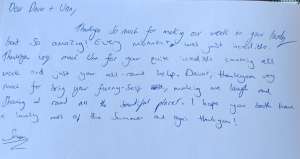 Dear Dave +
Thankyou so much for making our week in your lovely
boat so amazing! Every moment was just incredible.
Thankyou very much for your quite incredible cooking all
week and just your all-round help. Dave, thankyou very
much for being your funny-self, making me laugh and
showing us round all the beautiful places. I hope you both have
a lovely rest of the Summer and again thankyou!